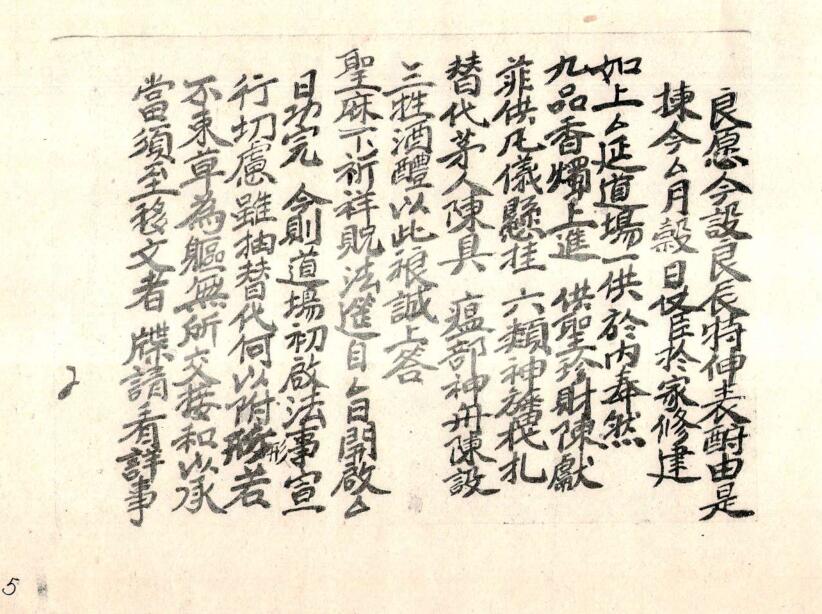 良愿今設良辰特伸表酧由是
揀今厶月穀日仗臣於家修建
如上厶延道場一供於內奉然
九品香燭上進 供聖珍財陳獻
菲供凡儀懸挂 六類神旛茷扎
替代茅人陳具 瘟部神舟陳設
三牲酒醴以此 誠上答
聖庥下祈祥貺法筵自厶日開啟厶
日功完 今則道場初啟法事宣
行切慮雖抽替代何以附形若
不束草為軀無所交接和以承
當須至移文者 牒請看詳事
2
5